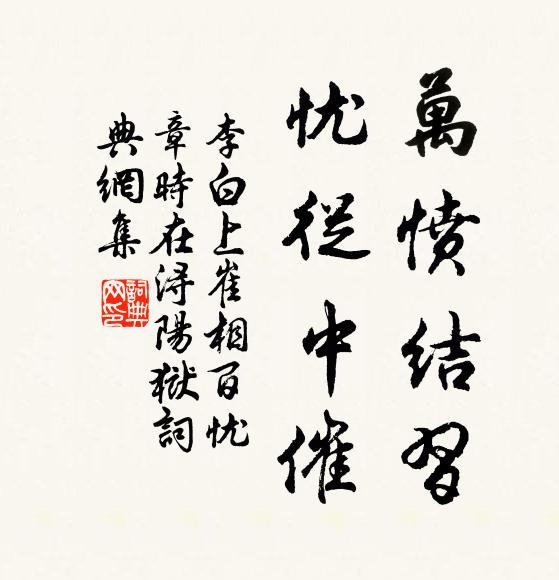 萬憤結習
忧從中催
李白上崔相百忧
章時在浔陽獄詞
典網集
詞典网印